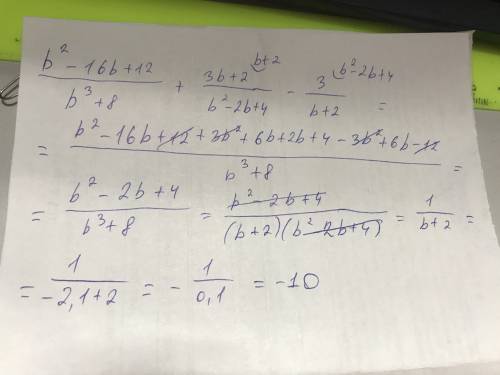 b+2 b²-2b+4
b²-16b+12 / b³+8 + 3b+2 / b²-2b+4 - 3 / b+2 =
= b²-16b+12+3b²+6b+2b+4-3b²+6b-12 / b³+8 =
= b²-2b+4 / b³+8 = b²-2b+4 / (b+2)(b²-2b+4) = 1 / b+2 =
= 1 / -2,1+2 = - 1 / 0,1 = -10